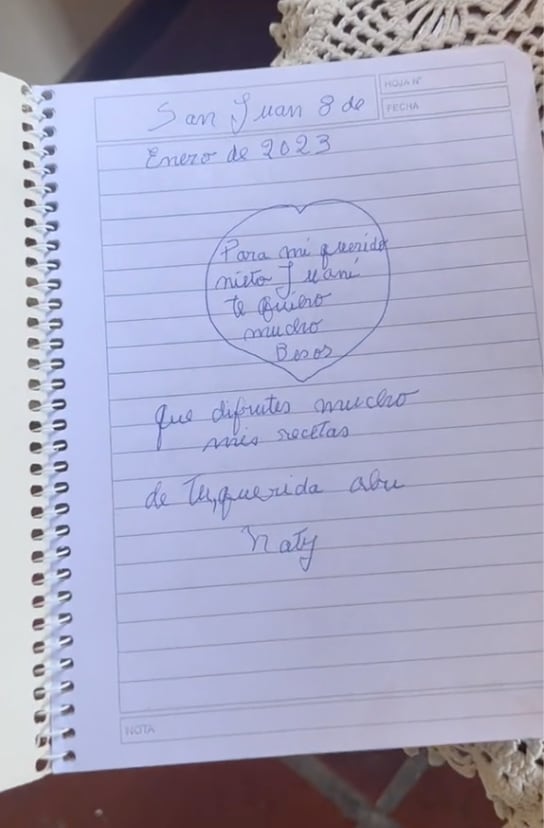 HOJA N°
FECHA
San Juan 8 de
Enero de 2023
Para mi querido
nieto Juani
te quiero
mucho
Besos
que difrutes mucho
mis recetas
de tu, querida abu
Naty
NOTA